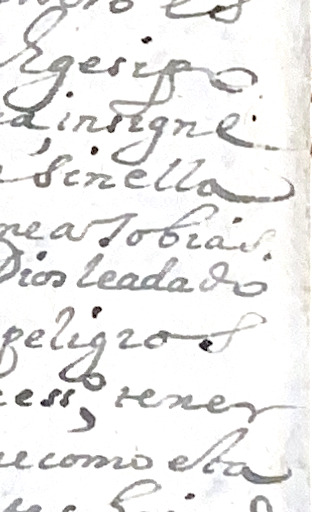 es
Egesipo
insigne
sinella
nea Tobias.
Dios leadado
peligros
cess.o tener
uecomo esta